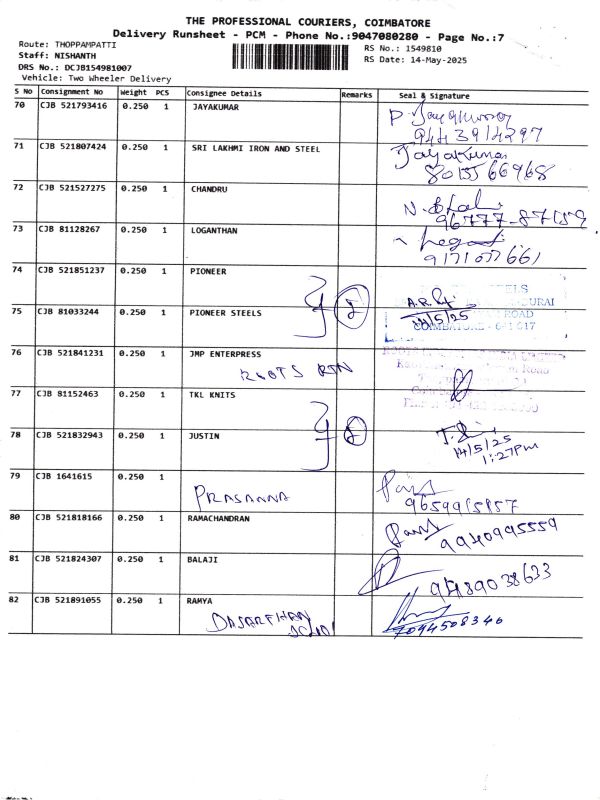 THE PROFESSIONAL COURIERS, COIMBATORE
Delivery Runsheet - PCM - Phone No.:9047080280 - Page No.:7
Route: THOPPAMPATTI
RS No.: 1549810
Staff: NISHANTH
RS Date: 14-May-2025
DRS No.: DCJB154981007
Vehicle: Two Wheeler Delivery
S No Consignment No Weight PCS Consignee Details Remarks Seal & Signature
70 CJB 521793416 0.250 1 JAYAKUMAR
9443914297
71 CJB 521807424 0.250 1 SRI LAKHMI IRON AND STEEL Jayakumar
8015566968
72 CJB 521527275 0.250 1 CHANDRU
73 CJB 81128267 0.250 1 LOGANTHAN
74 CJB 521851237 0.250 1 PIONEER
75 CJB 81033244 0.250 1 PIONEER STEELS 2 14/5/25
ROAD
COIMBATORE - 641 017
76 CJB 521841231 0.250 1 JMP ENTERPRESS
ROOTS RTN
77 CJB 81152463 0.250 1 TKL KNITS
78 CJB 521832943 0.250 1 JUSTIN 2
14/5/25
1:27pm
79 CJB 1641615 0.250 1
PRASANNA
80 CJB 521818166 0.250 1 RAMACHANDRAN
9940995559
81 CJB 521824307 0.250 1 BALAJI
9489038633
82 CJB 521891055 0.250 1 RAMYA
DASARTHAN
7094508346